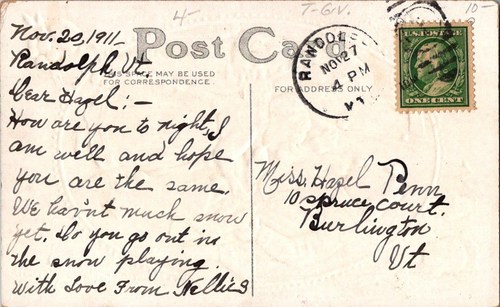 4-
T-G.V.
10-
Nov. 20, 1911-
Post Card
Randolph Vt
THIS SPACE MAY BE USED
FOR CORRESPONDENCE
FOR ADDRESS ONLY
RANDOL
NOV 27
4 PM
VT
U.S. POSTAGE
ONE CENT
Dear Hazel:-
How are you to night, I
am well and hope
you are the same.
We havnt much snow
yet. Do you go out in
the snow playing
With Love From Nellie
Miss. Hazel Penn
10 Spruce Court.
Burlington
Vt